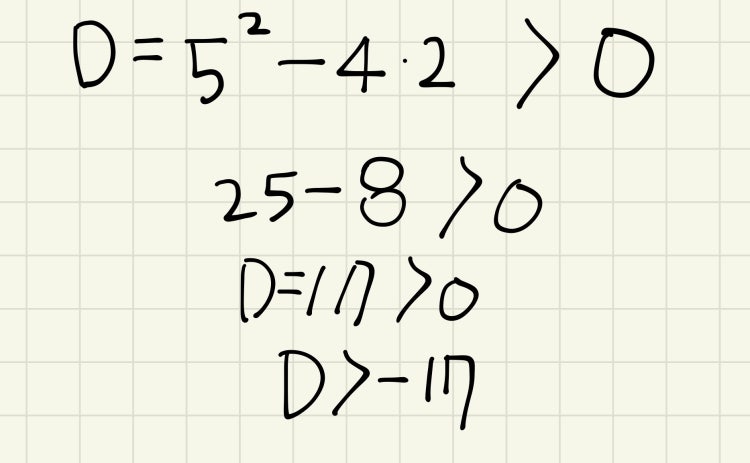 D = 5² - 4 · 2 > 0
25 - 8 > 0
D = 17 > 0
D > -17